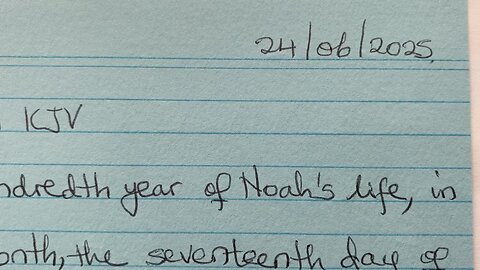 24/06/2025.
KJV
ndredth year of Noah's life, in
onth, the seventeenth day of